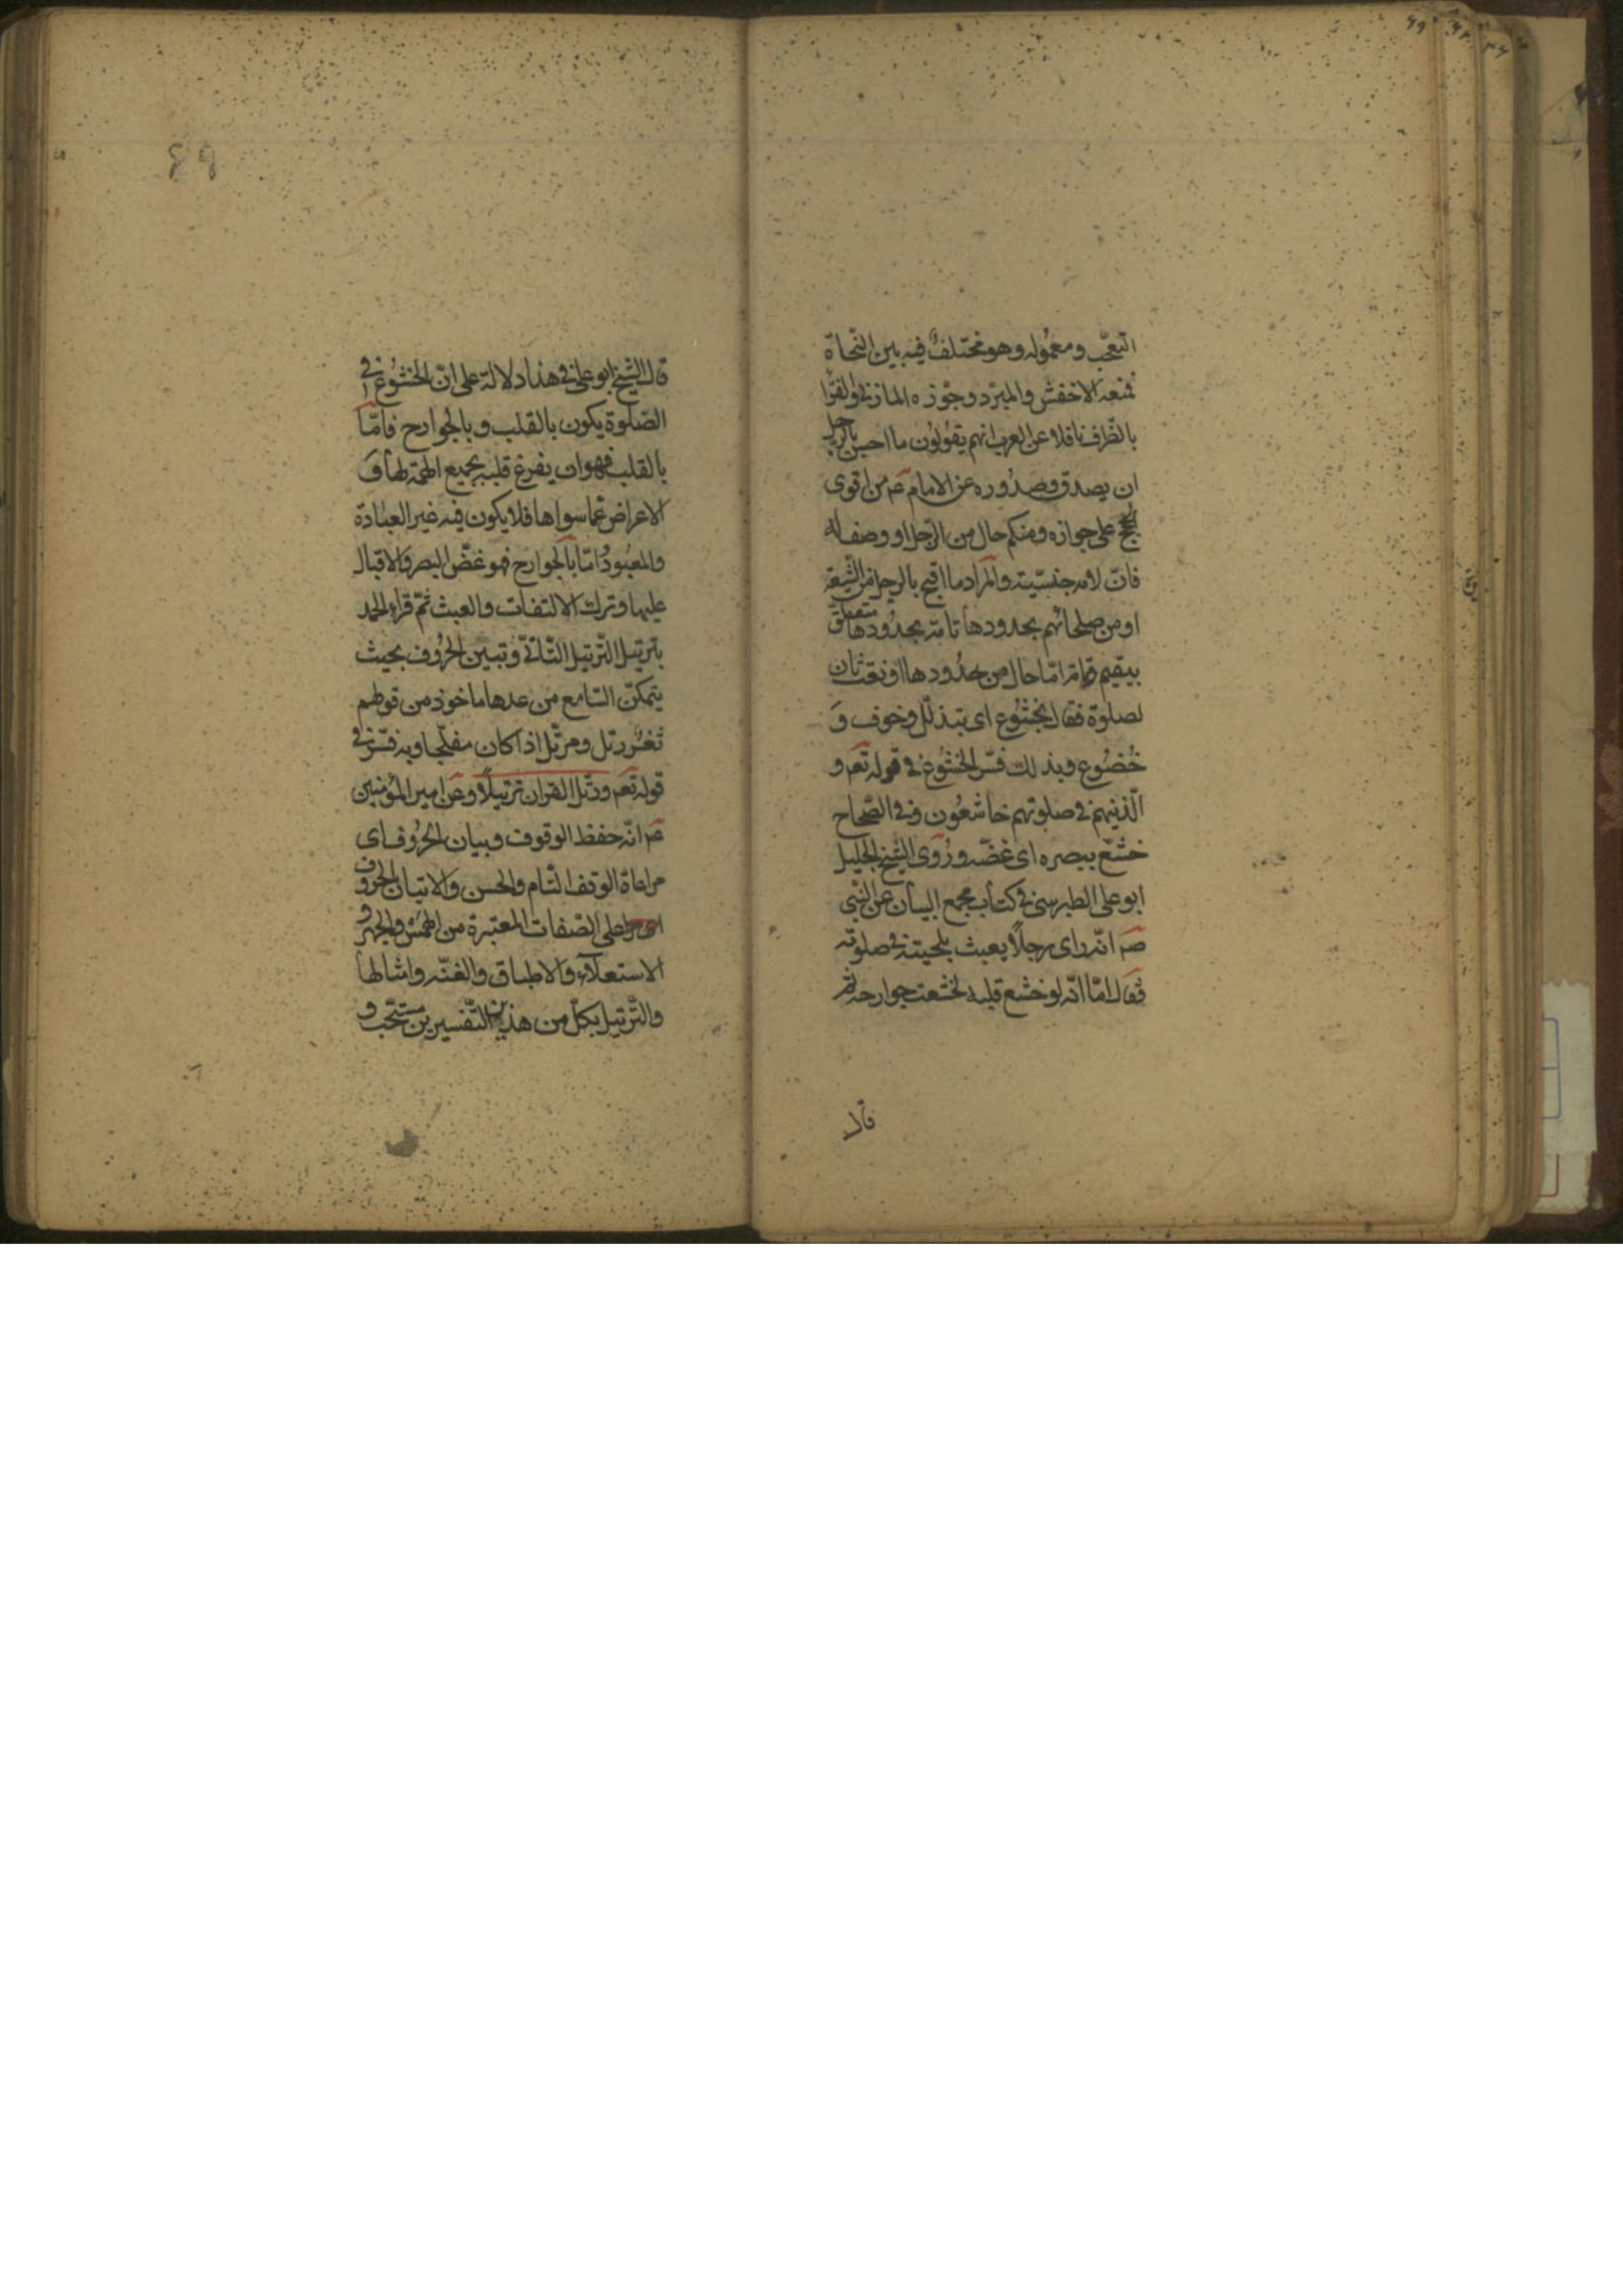 التعجّب ومعموله وهو مختلف فيه بين النحاة
فمنعه الاخفش والمبرّد وجوّزه المازنى والفرّا
بالظرف ناقلا عن العرب انهم يقولون ما احسن بالرجل
ان يصدق وصدوره عن الامام عم من اقوى
الحجج على جوازه ومنكم حال من الرجل او وصف له
فانّ لامه جنسيّة والمراد ما اقبح بالرجل من الشّيعة
او من صلحائهم بحدودها تامّة بحدودها متعلق
بيقيم وتامّة امّا حال من حدودها او نعت ثان
لصلوة فقال بخشوع اى بتذلّل وخوف وَ
خضوع وبذلك فسّر الخشوع فى قوله تعم و
الّذينهم فى صلوتهم خاشعون وفى الصّحاح
خشع ببصره اى غضّه وروى الشيخ الجليل
ابو على الطبرسى فى كتاب مجمع البيان عن النّبى
صم انّه راى رجلاً يعبث بلحيته فى صلوته
فقال امّا انّه لو خشع قلبه لخشعت جوارحه ثم
قال
٤٩
قال الشيخ ابو على فى هذا دلالة على انّ الخشوع فى
الصّلوة يكون بالقلب وبالجوارح فامّا
بالقلب فهو ان يفرغ قلبه بجميع الهمّة لها وَ
الاعراض عما سواها فلا يكون فيه غير العبادة
والمعبود امّا بالجوارح فهو غضّ البصر والاقبال
عليها وترك الالتفات والعبث ثمّ قراء الحمد
بترتيل الترتيل التّانّى وتبين الحروف بحيث
يتمكّن السّامع من عدها ماخوذ من قولهم
ثغر رتل ومرتّل اذا كان مفلّجا وبه فسّر فى
قوله تعم ورتّل القران ترتيلاً وعن امير المؤمنين
عم انّه حفظ الوقوف وبيان الحروف اى
مراعاة الوقف التّام والحسن والاتيان بالحروف
على الصّفات المعتبرة من الهمس والجهر و
الاستعلاء والاطباق والغنّه وامثالها
والتّرتيل بكلّ من هذين التّفسيرين مستحبّ و